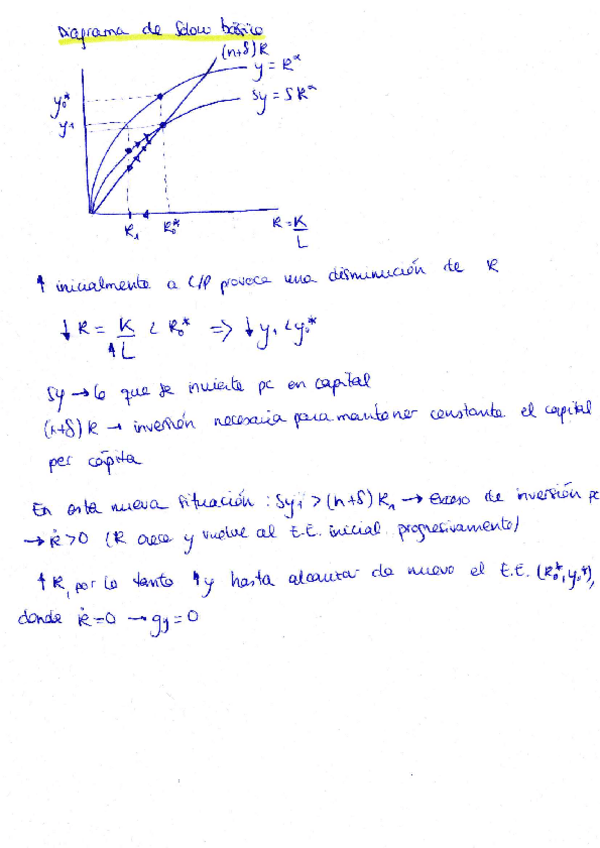 Diagrama de Solow básico
(n+δ)k
y = k^α
sy = s k^α
y₀*
y₁
k₁
k₀*
k = K/L
↑ inicialmente a C/P provoca una disminución de k
↓ k = K/↑L < k₀* => ↓ y₁ < y₀*
sy → lo que se invierte pc en capital
(n+δ) k → inversión necesaria para mantener constante el capital
per cápita
En esta nueva situación : sy₁ > (n+δ) k₁ → exceso de inversión pc
→ k̇ > 0 (k crece y vuelve al E.E. inicial progresivamente)
↑ k, por lo tanto ↑ y hasta alcanzar de nuevo el E.E. (k₀*, y₀*),
donde k̇ = 0 → gy = 0